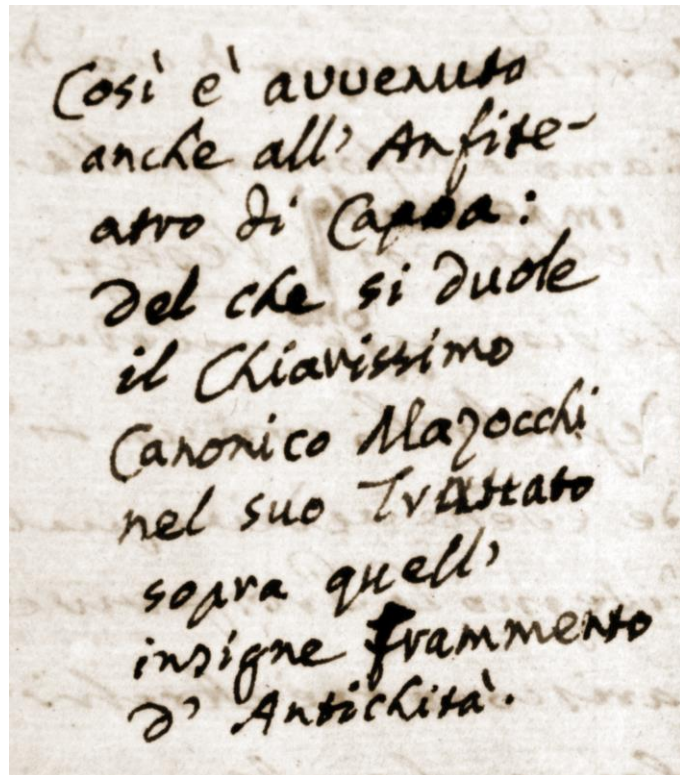 Così è avvenuto
anche all' Anfite-
atro di Capoa:
del che si duole
il Chiarissimo
Canonico Mazocchi
nel suo Trattato
sopra quell'
insigne frammento
d' Antichità.